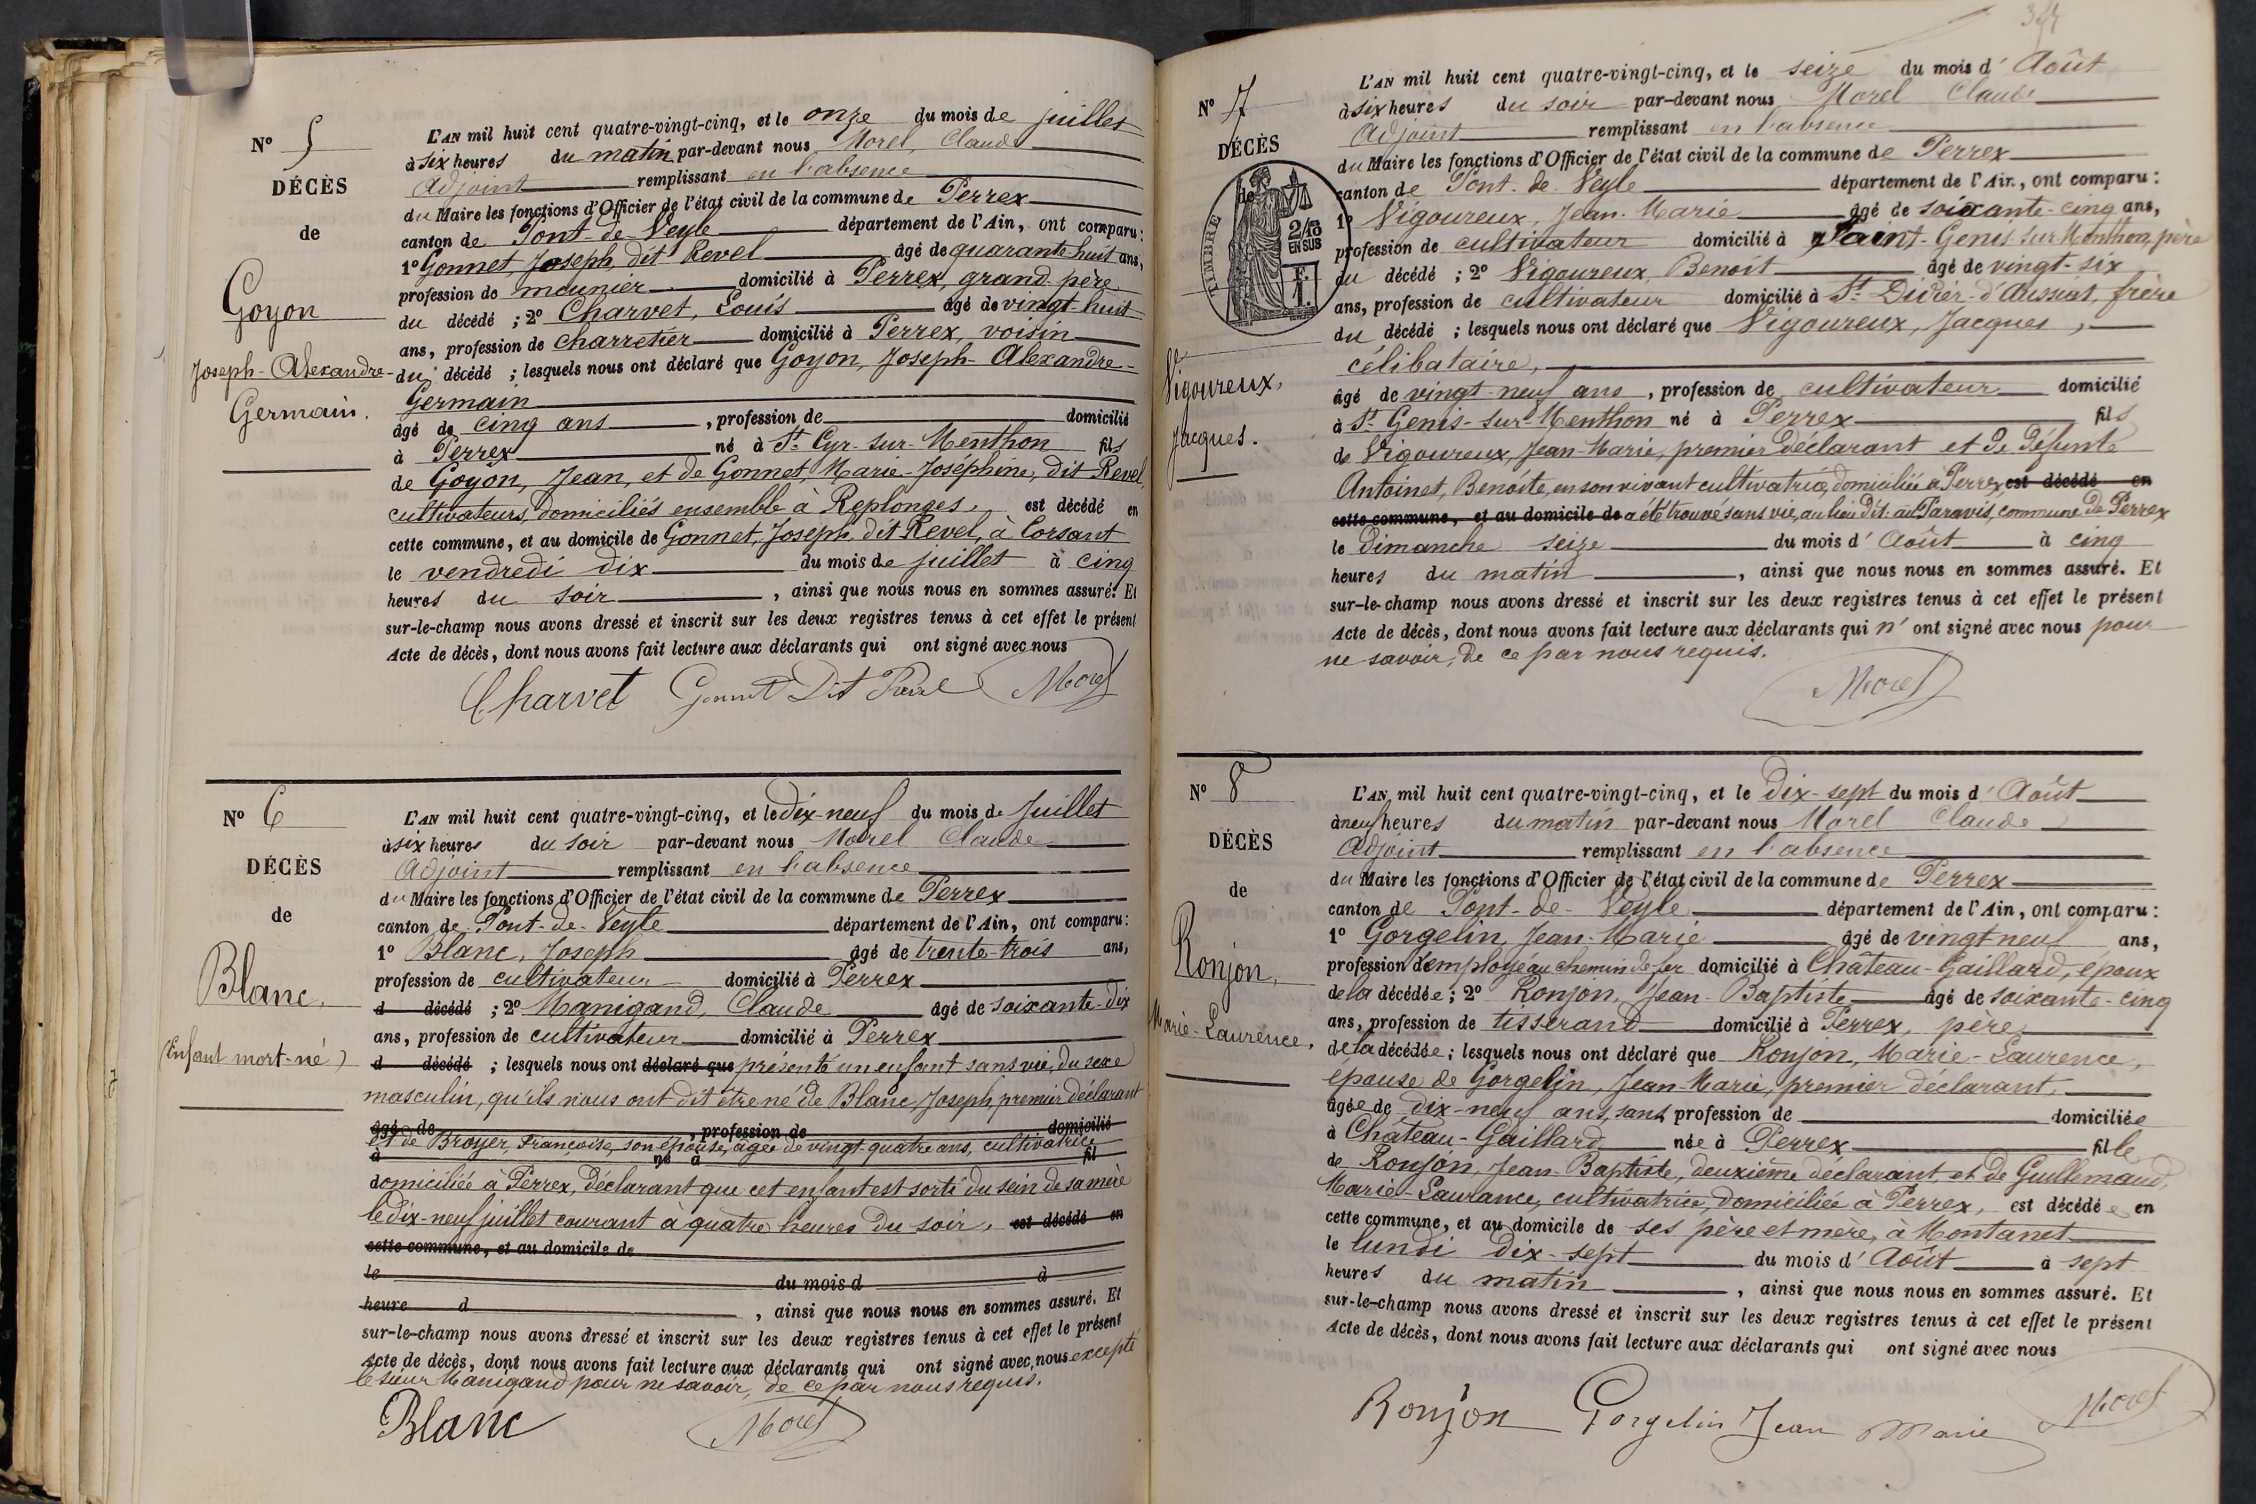 N° 5
DÉCÈS
de
Goyon
Joseph-Alexandre-
Germain.
L'AN mil huit cent quatre-vingt-cinq, et le onze du mois de juillet
à six heures du matin par-devant nous Morel, Claude
Adjoint remplissant en l'absence
du Maire les fonctions d'Officier de l'état civil de la commune de Perrex
canton de Pont-de-Veyle département de l'Ain, ont comparu:
1° Gonnet, Joseph, dit Revel âgé de quarante huit ans,
profession de meunier domicilié à Perrex, grand-père
du décédé ; 2° Charvet, Louis âgé de vingt-huit
ans, profession de charretier domicilié à Perrex, voisin
du décédé ; lesquels nous ont déclaré que Goyon, Joseph-Alexandre-
Germain
âgé de cinq ans , profession de domicilié
à Perrex né à St Cyr-sur-Menthon fils
de Goyon, Jean, et de Gonnet, Marie-Joséphine, dit Revel,
cultivateurs, domiciliés ensemble à Replonges, est décédé en
cette commune, et au domicile de Gonnet, Joseph, dit Revel, à Corsant
le vendredi dix du mois de juillet à cinq
heures du soir , ainsi que nous nous en sommes assuré. Et
sur-le-champ nous avons dressé et inscrit sur les deux registres tenus à cet effet le présent
Acte de décès, dont nous avons fait lecture aux déclarants qui ont signé avec nous
Charvet Gonnet Dit Revel Morel
N° 6
DÉCÈS
de
Blanc,
(Enfant mort-né)
L'AN mil huit cent quatre-vingt-cinq, et le dix-neuf du mois de Juillet
à six heures du soir par-devant nous Morel Claude
Adjoint remplissant en l'absence
du Maire les fonctions d'Officier de l'état civil de la commune de Perrex
canton de Pont-de-Veyle département de l'Ain, ont comparu:
1° Blanc, Joseph âgé de trente-trois ans,
profession de cultivateur domicilié à Perrex
d décédé ; 2° Manigand, Claude âgé de soixante-dix
ans, profession de cultivateur domicilié à Perrex
d décédé ; lesquels nous ont déclaré que présenté un enfant sans vie, du sexe
masculin, qu'ils nous ont dit être né de Blanc, Joseph, premier déclarant
âgé de , profession de domicilié
et de Broyer, Françoise, son épouse, âgée de vingt-quatre ans, cultivatrice
à né à fil
domiciliée à Perrex, déclarant que cet enfant est sorti du sein de sa mère
le dix-neuf juillet courant à quatre heures du soir, est décédé en
cette commune, et au domicile de
le du mois d à
heure d , ainsi que nous nous en sommes assuré. Et
sur-le-champ nous avons dressé et inscrit sur les deux registres tenus à cet effet le présent
Acte de décès, dont nous avons fait lecture aux déclarants qui ont signé avec nous excepté
le sieur Manigand pour ne savoir, de ce par nous requis.
Blanc Morel
N° 7
DÉCÈS
de
TIMBRE
2/10
EN SUS
F.
1.
Vigoureux,
Jacques.
L'AN mil huit cent quatre-vingt-cinq, et le seize du mois d'Août
à six heures du soir par-devant nous Morel Claude
Adjoint remplissant en l'absence
du Maire les fonctions d'Officier de l'état civil de la commune de Perrex
canton de Pont-de-Veyle département de l'Ain, ont comparu:
1° Vigoureux, Jean-Marie âgé de soixante-cinq ans,
profession de cultivateur domicilié à Saint-Genis sur Menthon, père
du décédé ; 2° Vigoureux, Benoît âgé de vingt-six
ans, profession de cultivateur domicilié à St Didier-d'Aussiat, frère
du décédé ; lesquels nous ont déclaré que Vigoureux, Jacques,
célibataire,
âgé de vingt-neuf ans , profession de cultivateur domicilié
à St Genis-sur-Menthon né à Perrex fils
de Vigoureux, Jean-Marie, premier déclarant et de défunte
Antoinet, Benoîte, en son vivant cultivatrice, domiciliée à Perrex, est décédé en
cette commune, et au domicile de a été trouvé sans vie, au lieu dit: au Paravis, commune de Perrex
le dimanche seize du mois d'Août à cinq
heures du matin , ainsi que nous nous en sommes assuré. Et
sur-le-champ nous avons dressé et inscrit sur les deux registres tenus à cet effet le présent
Acte de décès, dont nous avons fait lecture aux déclarants qui n'ont signé avec nous pour
ne savoir, de ce par nous requis.
Morel
N° 8
DÉCÈS
de
Ronjon,
Marie-Laurence,
L'AN mil huit cent quatre-vingt-cinq, et le dix-sept du mois d'Août
à neuf heures du matin par-devant nous Morel Claude
Adjoint remplissant en l'absence
du Maire les fonctions d'Officier de l'état civil de la commune de Perrex
canton de Pont-de-Veyle département de l'Ain, ont comparu:
1° Gorgelin, Jean-Marie âgé de vingt neuf ans,
profession d'employé au chemin de fer domicilié à Château-Gaillard, époux
de la décédée ; 2° Ronjon, Jean-Baptiste âgé de soixante-cinq
ans, profession de tisserand domicilié à Perrex, père
de la décédée ; lesquels nous ont déclaré que Ronjon, Marie-Laurence,
épouse de Gorgelin, Jean-Marie, premier déclarant,
âgée de dix-neuf ans, sans profession de domiciliée
à Château-Gaillard née à Perrex fille
de Ronjon, Jean-Baptiste, deuxième déclarant, et de Guillemaud,
Marie-Laurance, cultivatrice, domiciliée à Perrex, est décédée en
cette commune, et au domicile de ses père et mère, à Montanet
le lundi dix-sept du mois d'Août à sept
heures du matin , ainsi que nous nous en sommes assuré. Et
sur-le-champ nous avons dressé et inscrit sur les deux registres tenus à cet effet le présent
Acte de décès, dont nous avons fait lecture aux déclarants qui ont signé avec nous
Ronjon Gorgelin Jean Marie Morel